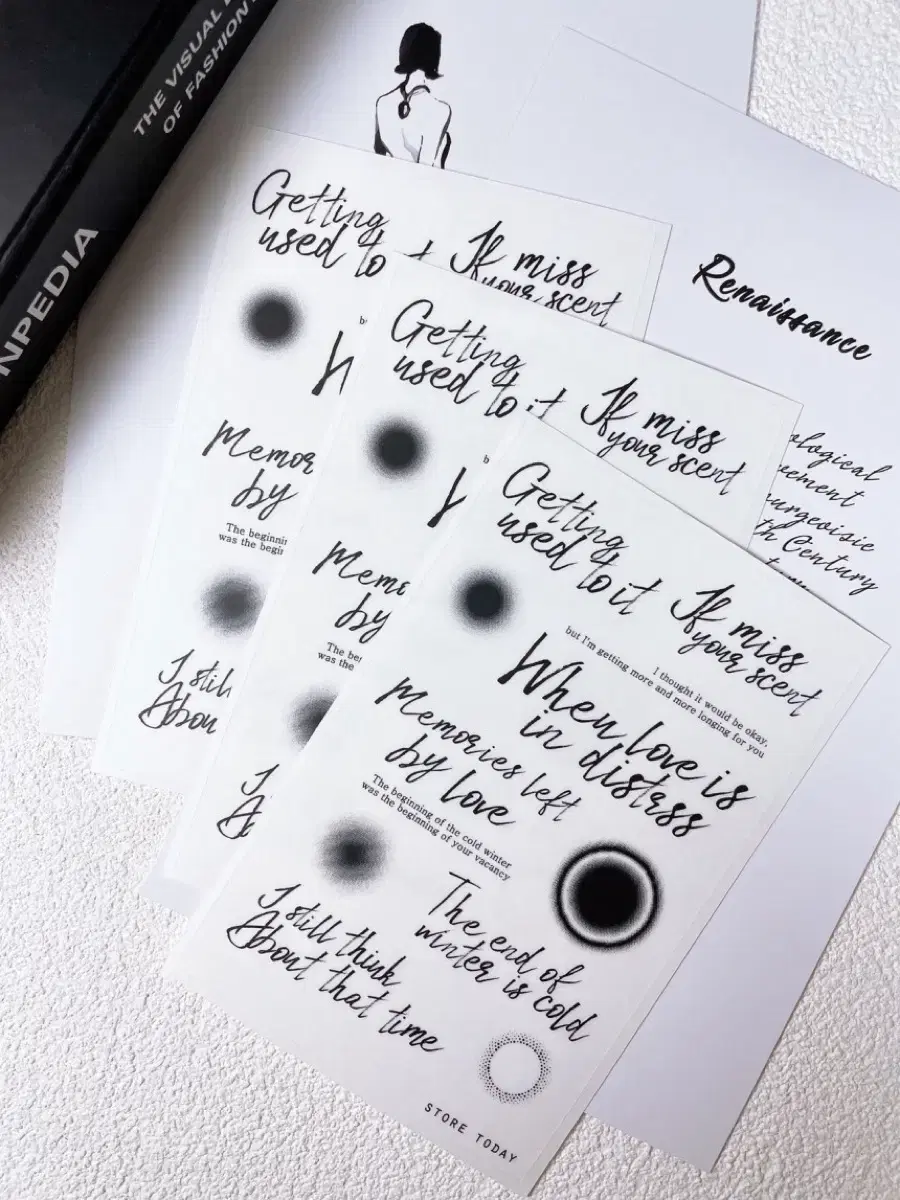 THE VISUAL
OF FASHION
NPEDIA
Renaissance
ological
vement
urgeoisie
th Century
Getting
used to it
If miss
your scent
Memor
by
The beginnin
was the begin
I still
Abou
Getting
used to it
If miss
your scent
Memo
by
The be
was the
I
A
Getting
used to it
If miss
your scent
I thought it would be okay,
but I'm getting more and more longing for you
When love is
in distress
Memories left
by love
The beginning of the cold winter
was the beginning of your vacancy
The end of
winter is cold
I still think
About that time
STORE TODAY